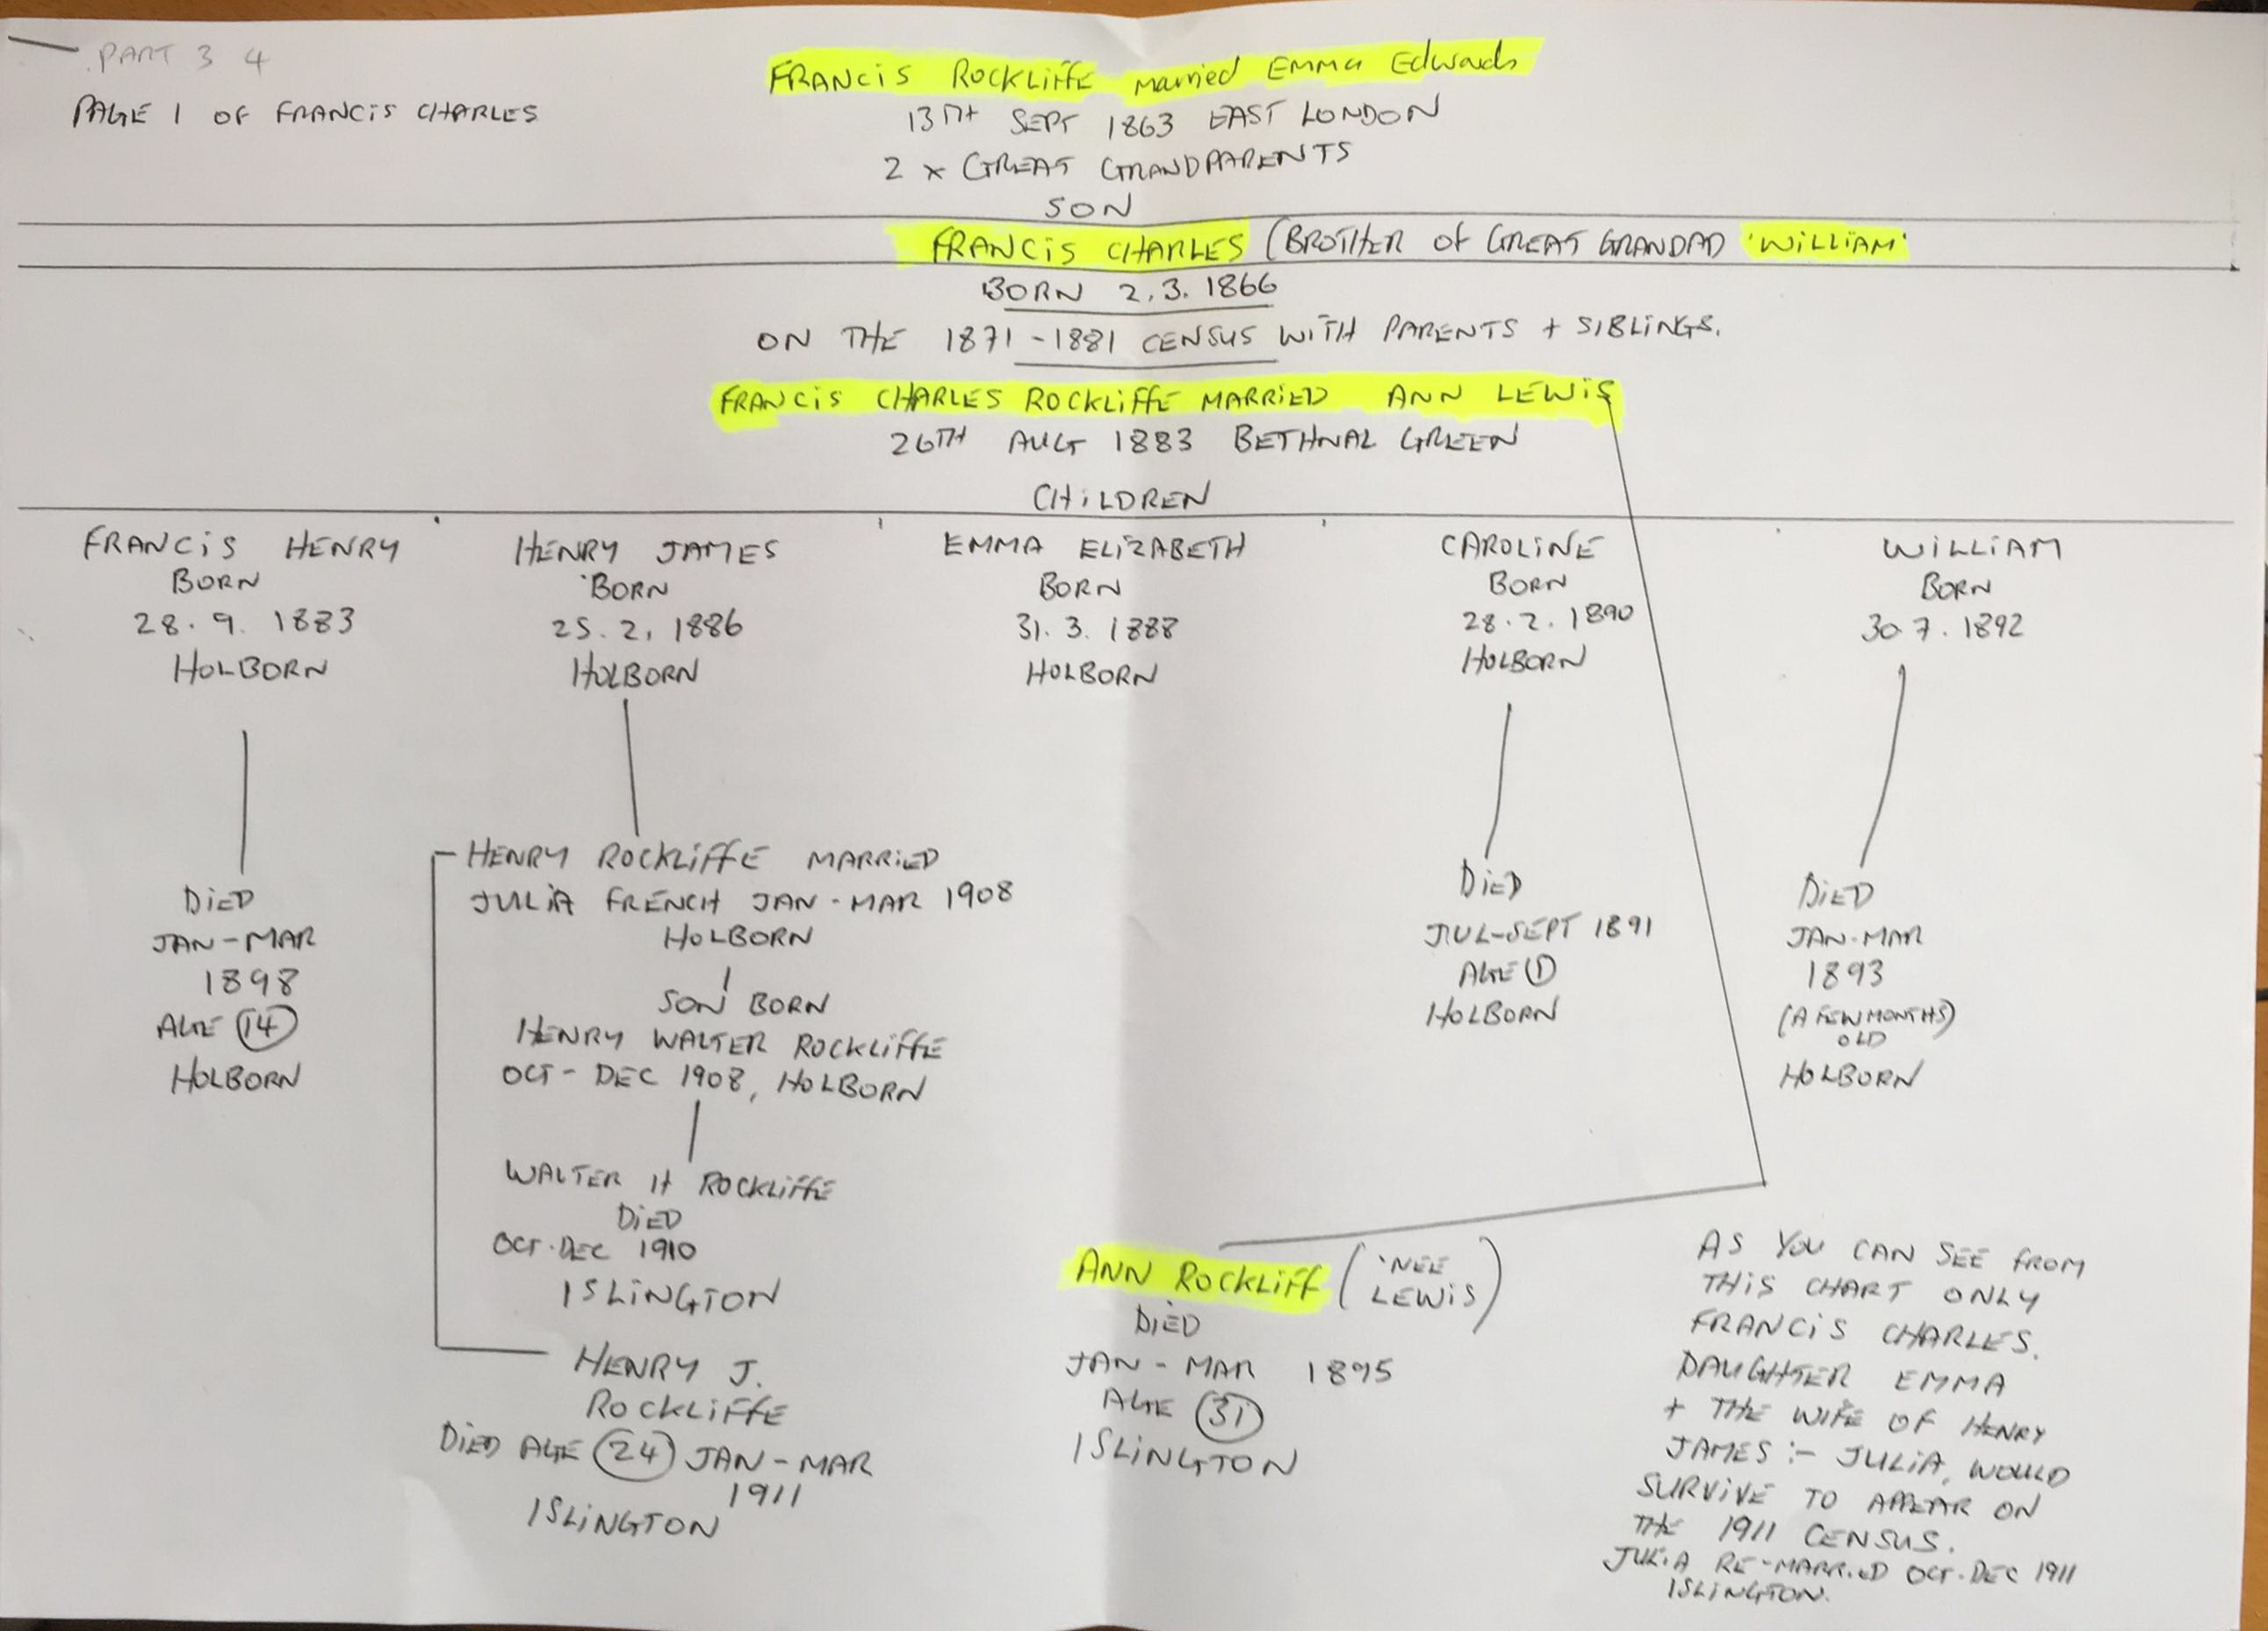 PART 3 4
PAGE 1 OF FRANCIS CHARLES
FRANCIS ROCKLIFFE married EMMA Edwards
13TH SEPT 1863 EAST LONDON
2 x GREAT GRANDPARENTS
SON
FRANCIS CHARLES (BROTHER OF GREAT GRANDAD 'WILLIAM'
BORN 2.3.1866
ON THE 1871-1881 CENSUS WITH PARENTS + SIBLINGS.
FRANCIS CHARLES ROCKLIFFE MARRIED ANN LEWIS
26TH AUG 1883 BETHNAL GREEN
CHILDREN
FRANCIS HENRY
BORN
28.9.1883
HOLBORN
DIED
JAN-MAR
1898
AGE 14
HOLBORN
HENRY JAMES
BORN
25.2.1886
HOLBORN
HENRY ROCKLIFFE MARRIED
JULIA FRENCH JAN-MAR 1908
HOLBORN
SON BORN
HENRY WALTER ROCKLIFFE
OCT-DEC 1908, HOLBORN
WALTER H ROCKLIFFE
DIED
OCT-DEC 1910
ISLINGTON
HENRY J.
ROCKLIFFE
DIED AGE 24 JAN-MAR
1911
ISLINGTON
EMMA ELIZABETH
BORN
31.3.1888
HOLBORN
CAROLINE
BORN
28.2.1890
HOLBORN
DIED
JUL-SEPT 1891
AGE 1
HOLBORN
WILLIAM
BORN
30.7.1892
DIED
JAN-MAR
1893
(A FEW MONTHS)
OLD
HOLBORN
ANN ROCKLIFF ('NEE
LEWIS)
DIED
JAN-MAR 1895
AGE 31
ISLINGTON
AS YOU CAN SEE FROM
THIS CHART ONLY
FRANCIS CHARLES.
DAUGHTER EMMA
+ THE WIFE OF HENRY
JAMES :- JULIA, WOULD
SURVIVE TO APPEAR ON
THE 1911 CENSUS.
JULIA RE-MARRIED OCT-DEC 1911
ISLINGTON.